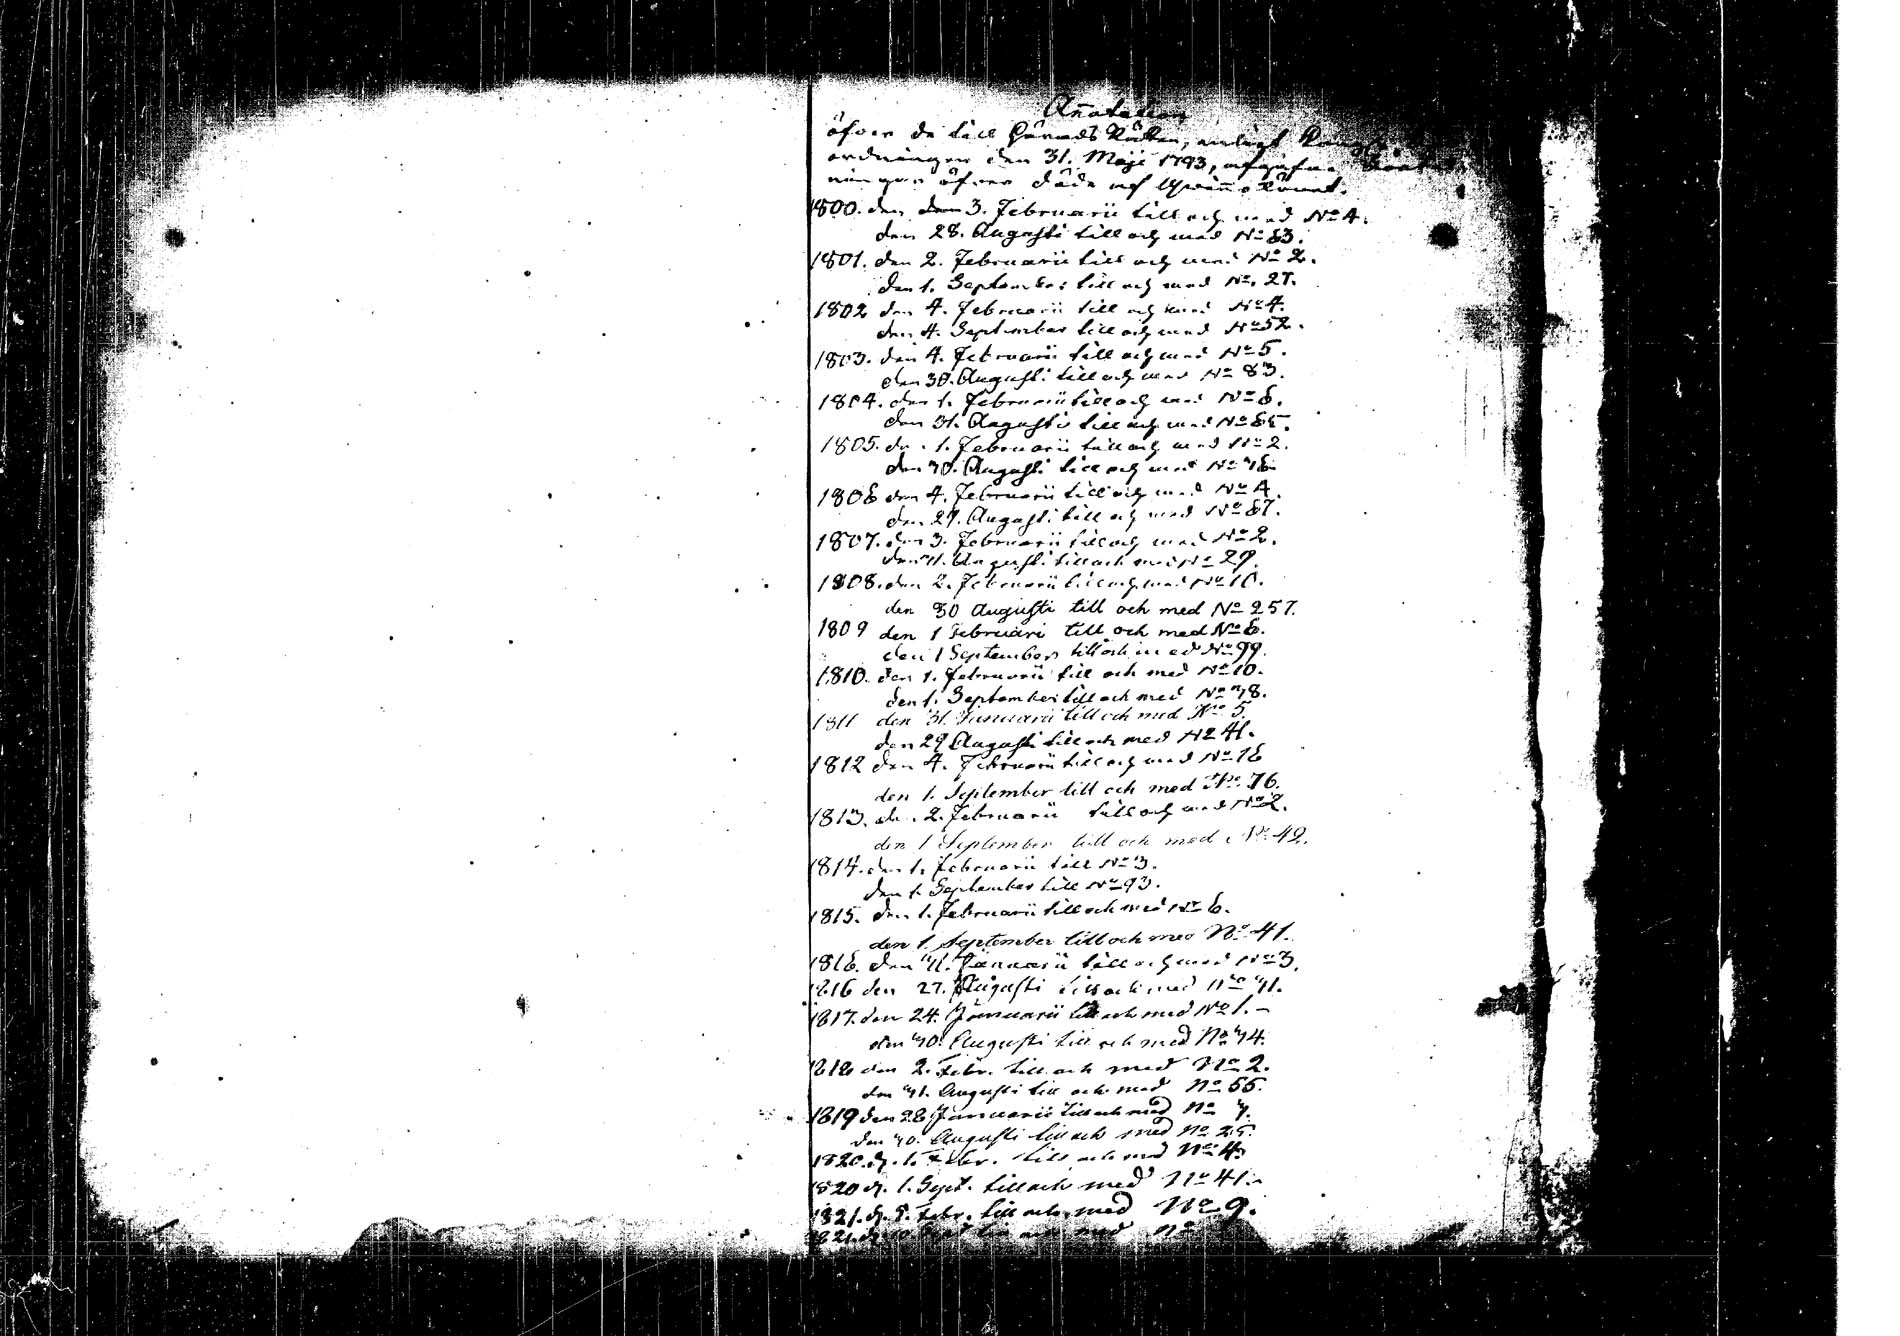 Añotation
öfver de till Härads Rätten, enligt Kongl.
ordningen den 31. Maji 1793, afgifne
ningar öfver döda af
1800. den 3. Februarii till och med No 4.
den 28. Augusti till och med No 63.
1801. den 2. Februarii till och med No 2.
den 1. September till och med No. 27.
1802 den 4. Februarii till och med No 4.
den 4. September till och med No 52.
1803. den 4. Februarii till och med No 5.
den 30. Augusti till och med No 83.
1804. den 1. Februarii till och med No 6.
den 31. Augusti till och med No 65.
1805. den 1. Februarii till och med No 2.
den 30. Augusti till och med No 36.
1806 den 4. Februarii till och med No 4.
den 29. Augusti till och med No 67.
1807. den 3. Februarii till och med No 2.
den 31. Augusti till och med No 29.
1808. den 2. Februarii till och med No 10.
den 30 Augusti till och med No 257.
1809 den 1 Februari till och med No 6.
den 1 September till och med No 99.
1810. den 1. Februarii till och med No 10.
den 1. September till och med No 38.
1811 den 31. Januarii till och med No 5.
den 29 Augusti till och med No 41.
1812 den 4. Februarii till och med No 16
den 1. September till och med No 76.
1813. den 2. Februarii till och med No 2.
den 1 September till och med No 42.
1814. den 1. Februarii till No 3.
den 1. September till No 93.
1815. den 1. Februarii till och med No 6.
den 1. September till och med No 41.
1816. den 31. Januarii till och med No 3.
1816 den 27. Augusti till och med No 31.
1817. den 24. Januarii till och med No 1. –
den 30. Augusti till och med No 34.
1818 den 2. Febr. till och med No 2.
den 31. Augusti till och med No 55.
1819 den 28 Januarii till och med No 3.
den 30. Augusti till och med No 25.
1820. d. 1. Febr. till och med No 4.
1820 d. 1. Sept. till och med No 41. –
1821. d. 5. Febr. till och med No 9.
1821. d. Sept till och med No